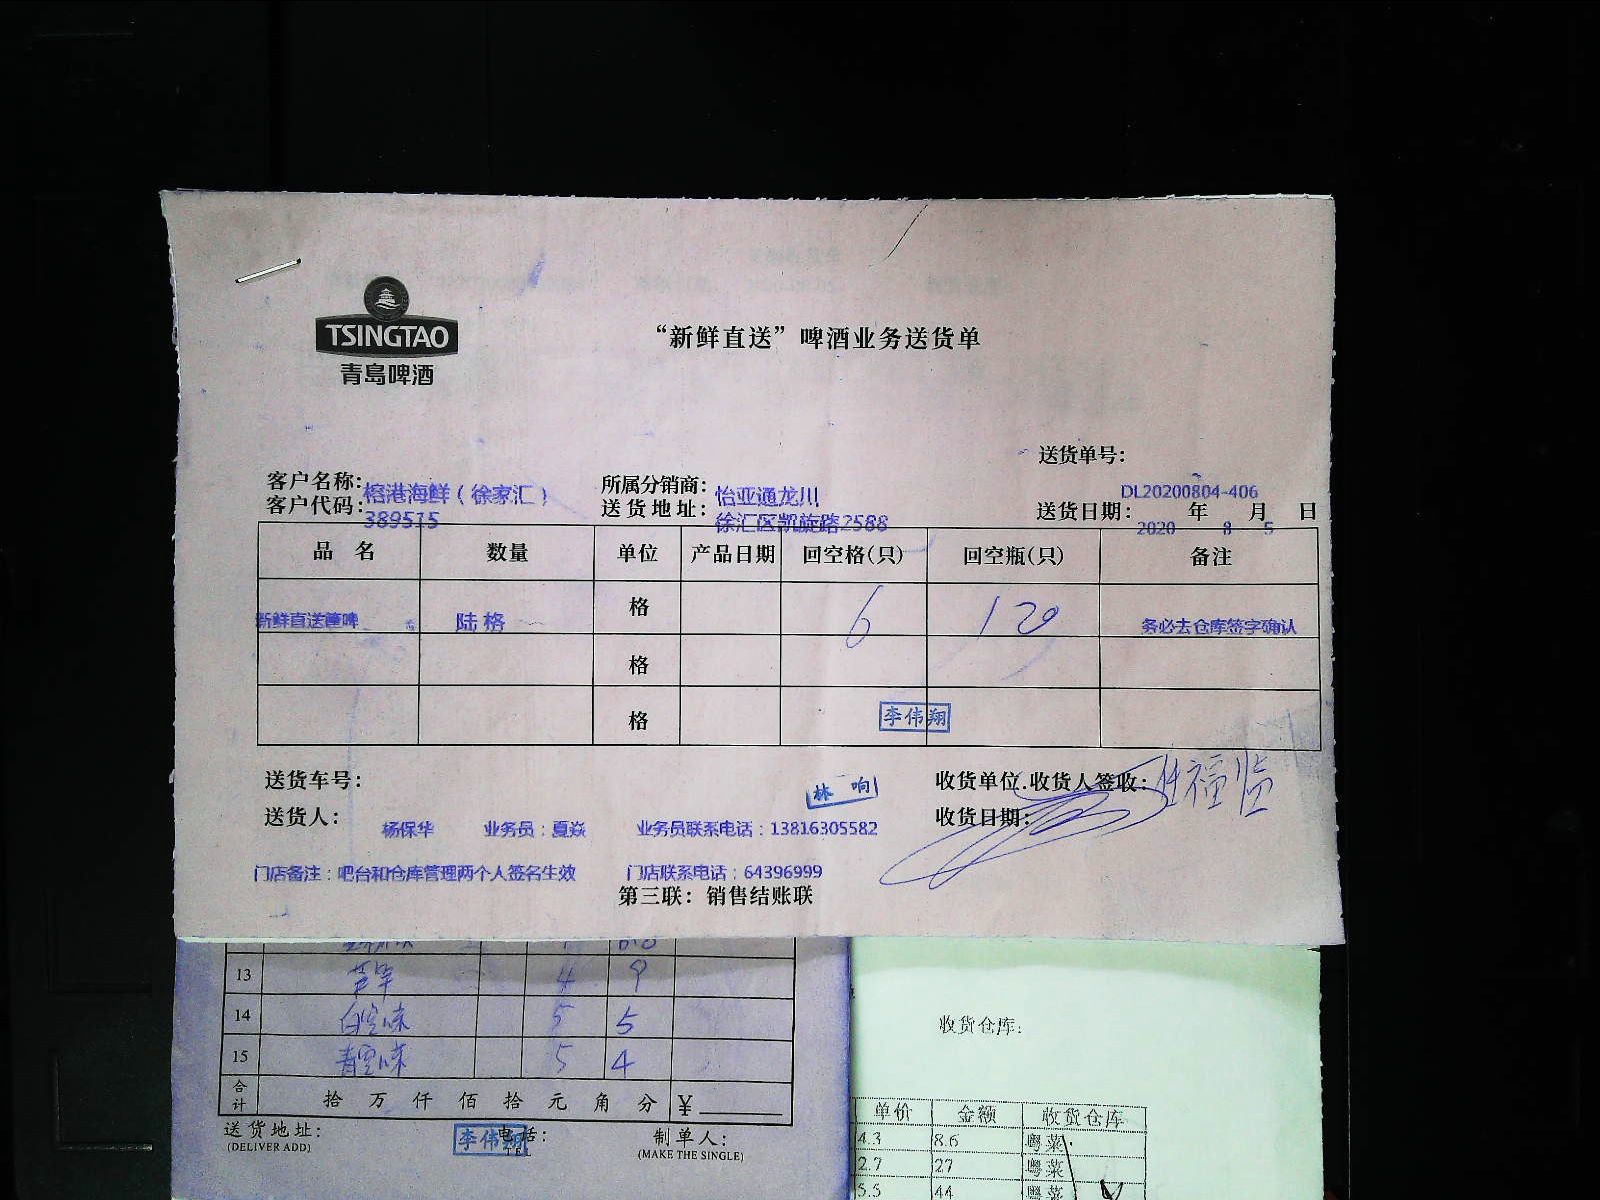 TSINGTAO
青岛啤酒
“新鲜直送”啤酒业务送货单
送货单号：
DL20200804-406
客户名称： 榕港海鲜（徐家汇） 所属分销商： 怡亚通龙川
客户代码： 389515 送货地址： 徐汇区凯旋路2588 送货日期： 2020 年 8 月 5 日
品 名 数量 单位 产品日期 回空格(只) 回空瓶(只) 备注
新鲜直送篦啤 陆格 格 6 120 务必去仓库签字确认
格
格
李伟翔
送货车号： 林 响 收货单位.收货人签收： 福临
送货人： 杨保华 业务员：夏焱 业务员联系电话：13816305582 收货日期：
门店备注：吧台和仓库管理两个人签名生效 门店联系电话：64396999
第三联：销售结账联
13 4 9
14 5 5
15 5 4
合计 拾 万 仟 佰 拾 元 角 分 ¥
送货地址： 电话： 制单人：
(DELIVER ADD) TEL (MAKE THE SINGLE)
李伟翔
收货仓库：
单价 金额 收货仓库
4.3 8.6 粤菜
2.7 27 粤菜
5.5 44 粤菜